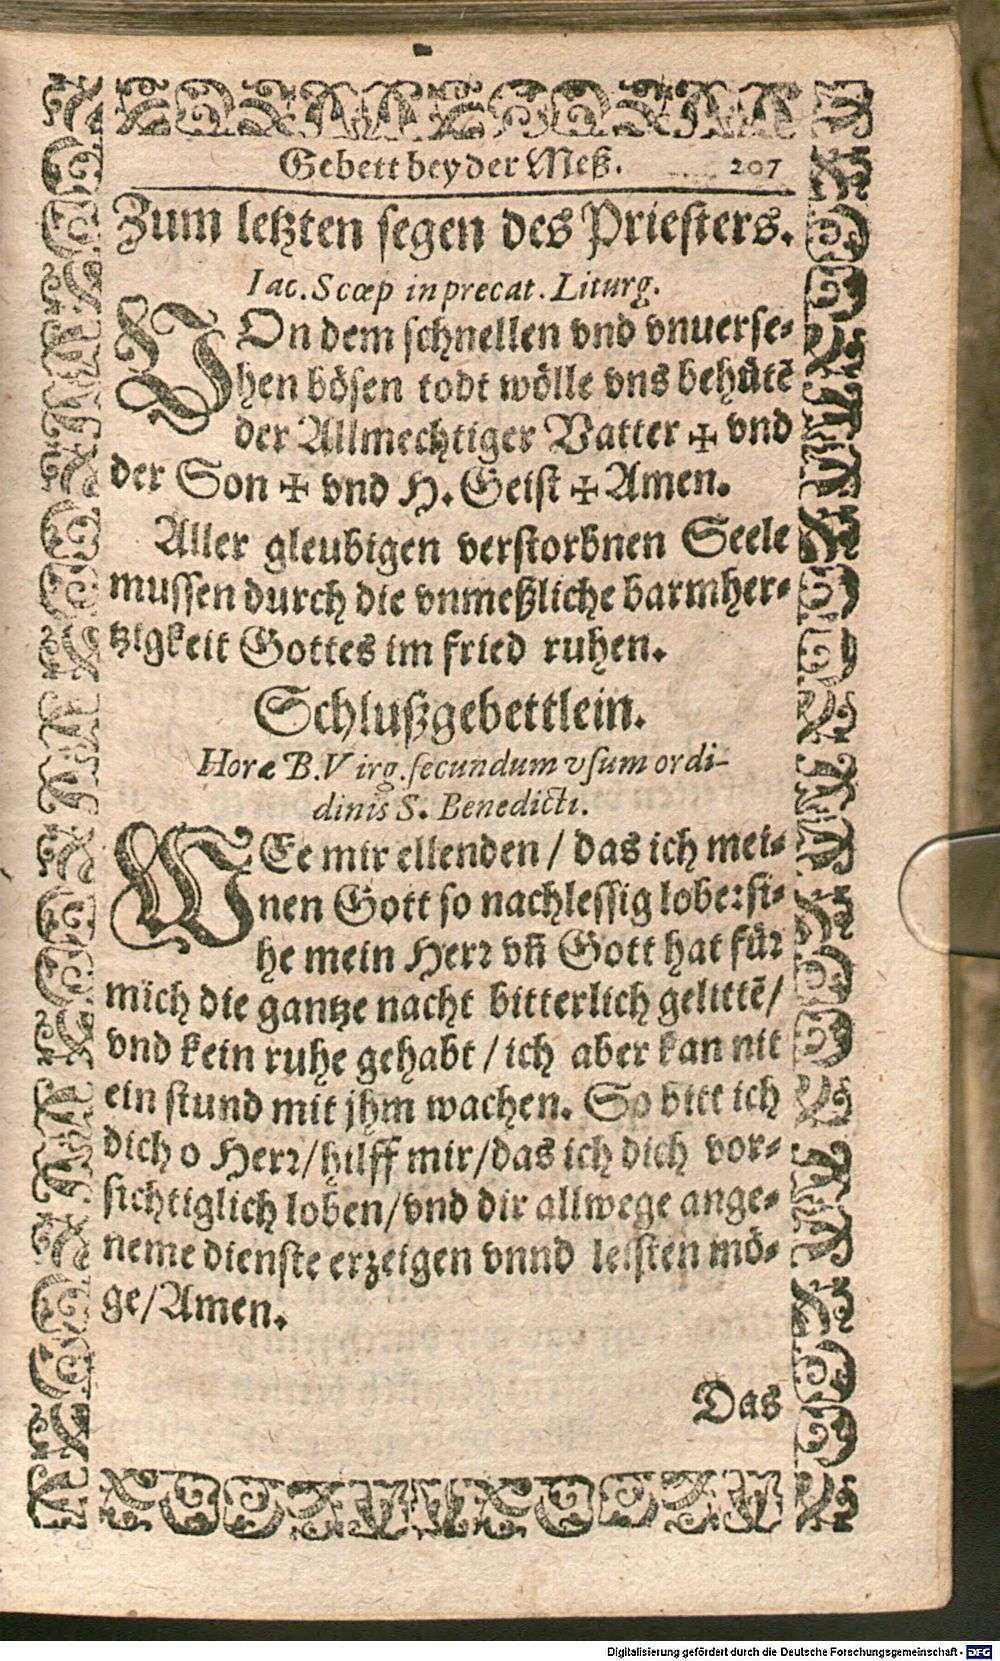 Gebett bey der Meß. 207
Zum letzten segen des Priesters.
Iac. Scœp in precat. Liturg.
VOn dem schnellen vnd vnuerse-
hen bösen todt wölle vns behütē
der Allmechtiger Vatter ✠ vnd
der Son ✠ vnd H. Geist ✠ Amen.
Aller gleubigen verstorbnen Seele
mussen durch die vnmeßliche barmher-
tzigkeit Gottes im fried ruhen.
Schlußgebettlein.
Horæ B. Virg. secundum vsum ordi-
dinis S. Benedicti.
WEe mir ellenden / das ich mei-
nen Gott so nachlessig lobe: si-
he mein Herr vñ Gott hat für
mich die gantze nacht bitterlich gelittē/
vnd kein ruhe gehabt / ich aber kan nit
ein stund mit jhm wachen. So bitt ich
dich o Herr/hilff mir/das ich dich vor-
sichtiglich loben/vnd dir allwege ange-
neme dienste erzeigen vnnd leisten mö-
ge/Amen.
Das
Digitalisierung gefördert durch die Deutsche Forschungsgemeinschaft - DFG